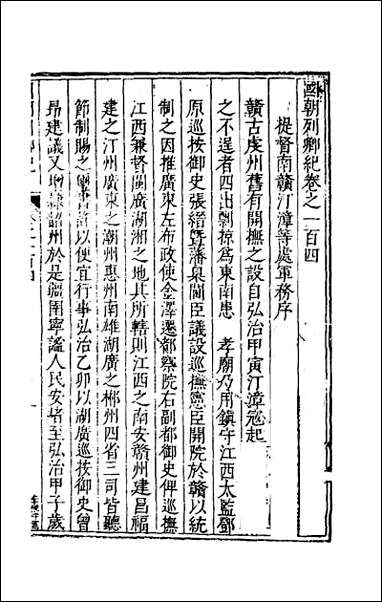 國朝列卿紀卷之一百四
提督南贛汀漳等處軍務序
贛古虔州舊有開撫之設自弘治甲寅汀漳寇起
之不逞者四出剽掠為東南患　孝廟乃用鎮守江西太監鄧
原巡按御史張縉暨藩臬閫臣議設巡撫憲臣開院於贛以統
制之因推廣東左布政使金澤遷都察院右副都御史俾巡撫
江西兼督閩廣湖湘之地其所轄則江西之南安贛州建昌福
建之汀州廣東之潮州惠州南雄湖廣之郴州四省三司皆聽
節制賜之璽書許以便宜行事弘治乙卯以湖廣巡按御史曾
昂建議又增韶州於是疆圉寧謐人民安堵至弘治甲子歲